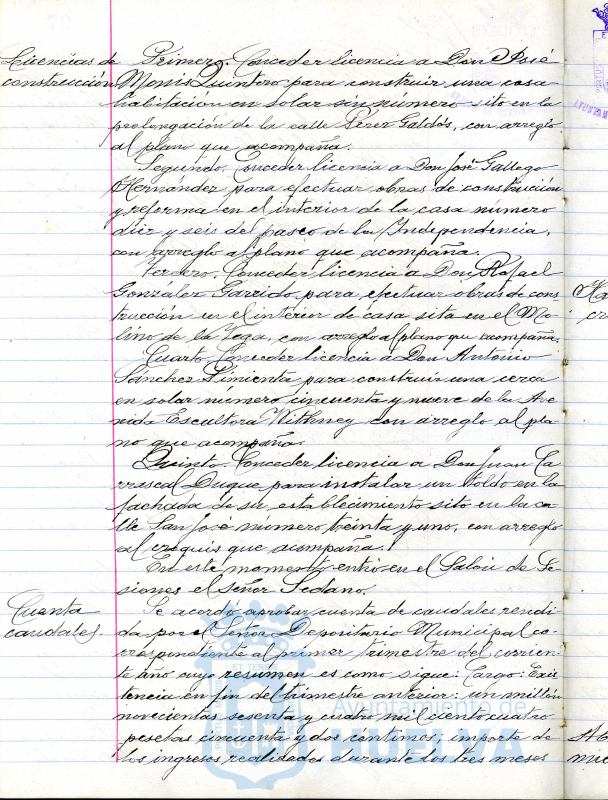 Licencias de
construcción
Primero. Conceder licencia a Don José
Monis Quintero para construir una casa
habitación en solar sin número sito en la
prolongación de la calle Pérez Galdós, con arreglo
al plano que acompaña.
Segundo. Conceder licencia a Don José Gallego
Hernandez para efectuar obras de construcción
y reforma en el interior de la casa número
diez y seis del paseo de la Independencia,
con arreglo al plano que acompaña.
Tercero. Conceder licencia a Don Rafael
González Garrido para efectuar obras de cons
trucción en el interior de casa sita en el Mo-
lino de la Vega, con arreglo al plano que acompaña.
Cuarto. Conceder licencia a Don Antonio
Sánchez Pimienta para construir una cerca
en solar número cincuenta y nueve de la Ave
nida Escultora Withney con arreglo al pla
no que acompaña.
Quinto. Conceder licencia a Don Juan Ca
rrascal Duque para instalar un toldo en la
fachada de su establecimiento sito en la ca
lle San José número treinta y uno, con arreglo
al croquis que acompaña.
En este momento entró en el Salón de Se
siones el señor Sedano.
Cuenta
caudales.
Se acordó aprobar cuenta de caudales rendi
da por el Señor Depositario Municipal co-
rrespondiente al primer trimestre del corrien-
te año cuyo resumen es como sigue: Cargo: Exis
tencia en fin del trimestre anterior: un millón
novecientas sesenta y cuatro mil ciento cuatro
pesetas cincuenta y dos céntimos; importe de
los ingresos realizados durante los tres meses
Ayuntamiento de
HUELVA